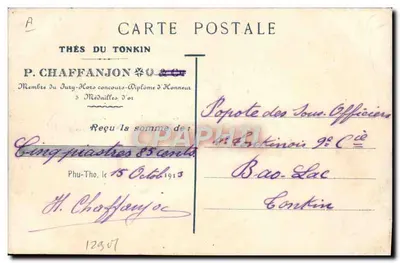 A
CARTE POSTALE
THÉS DU TONKIN
P. CHAFFANJON
Membre du Jury-Hors concours-Diplôme d'Honneur
3 Médailles d'or
Reçu la somme de:
Cinq piastres 85 cents
Phu-Tho, le 15 Octob 1913
H. Chaffanjon
Popote des Sous-Officiers
Tonkinois 9e Cie
Bao-Lac
Tonkin